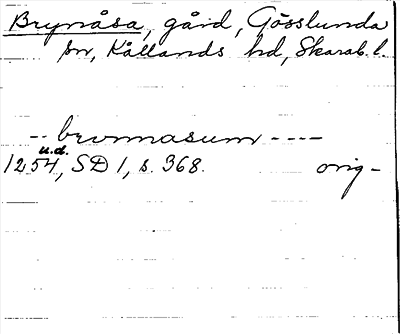 Brynåsa, gård, Gösslunda
sn, Kållands hd, Skarab. l.
-- bronnasum ----
u.d.
1254, SD 1, s. 368. orig -